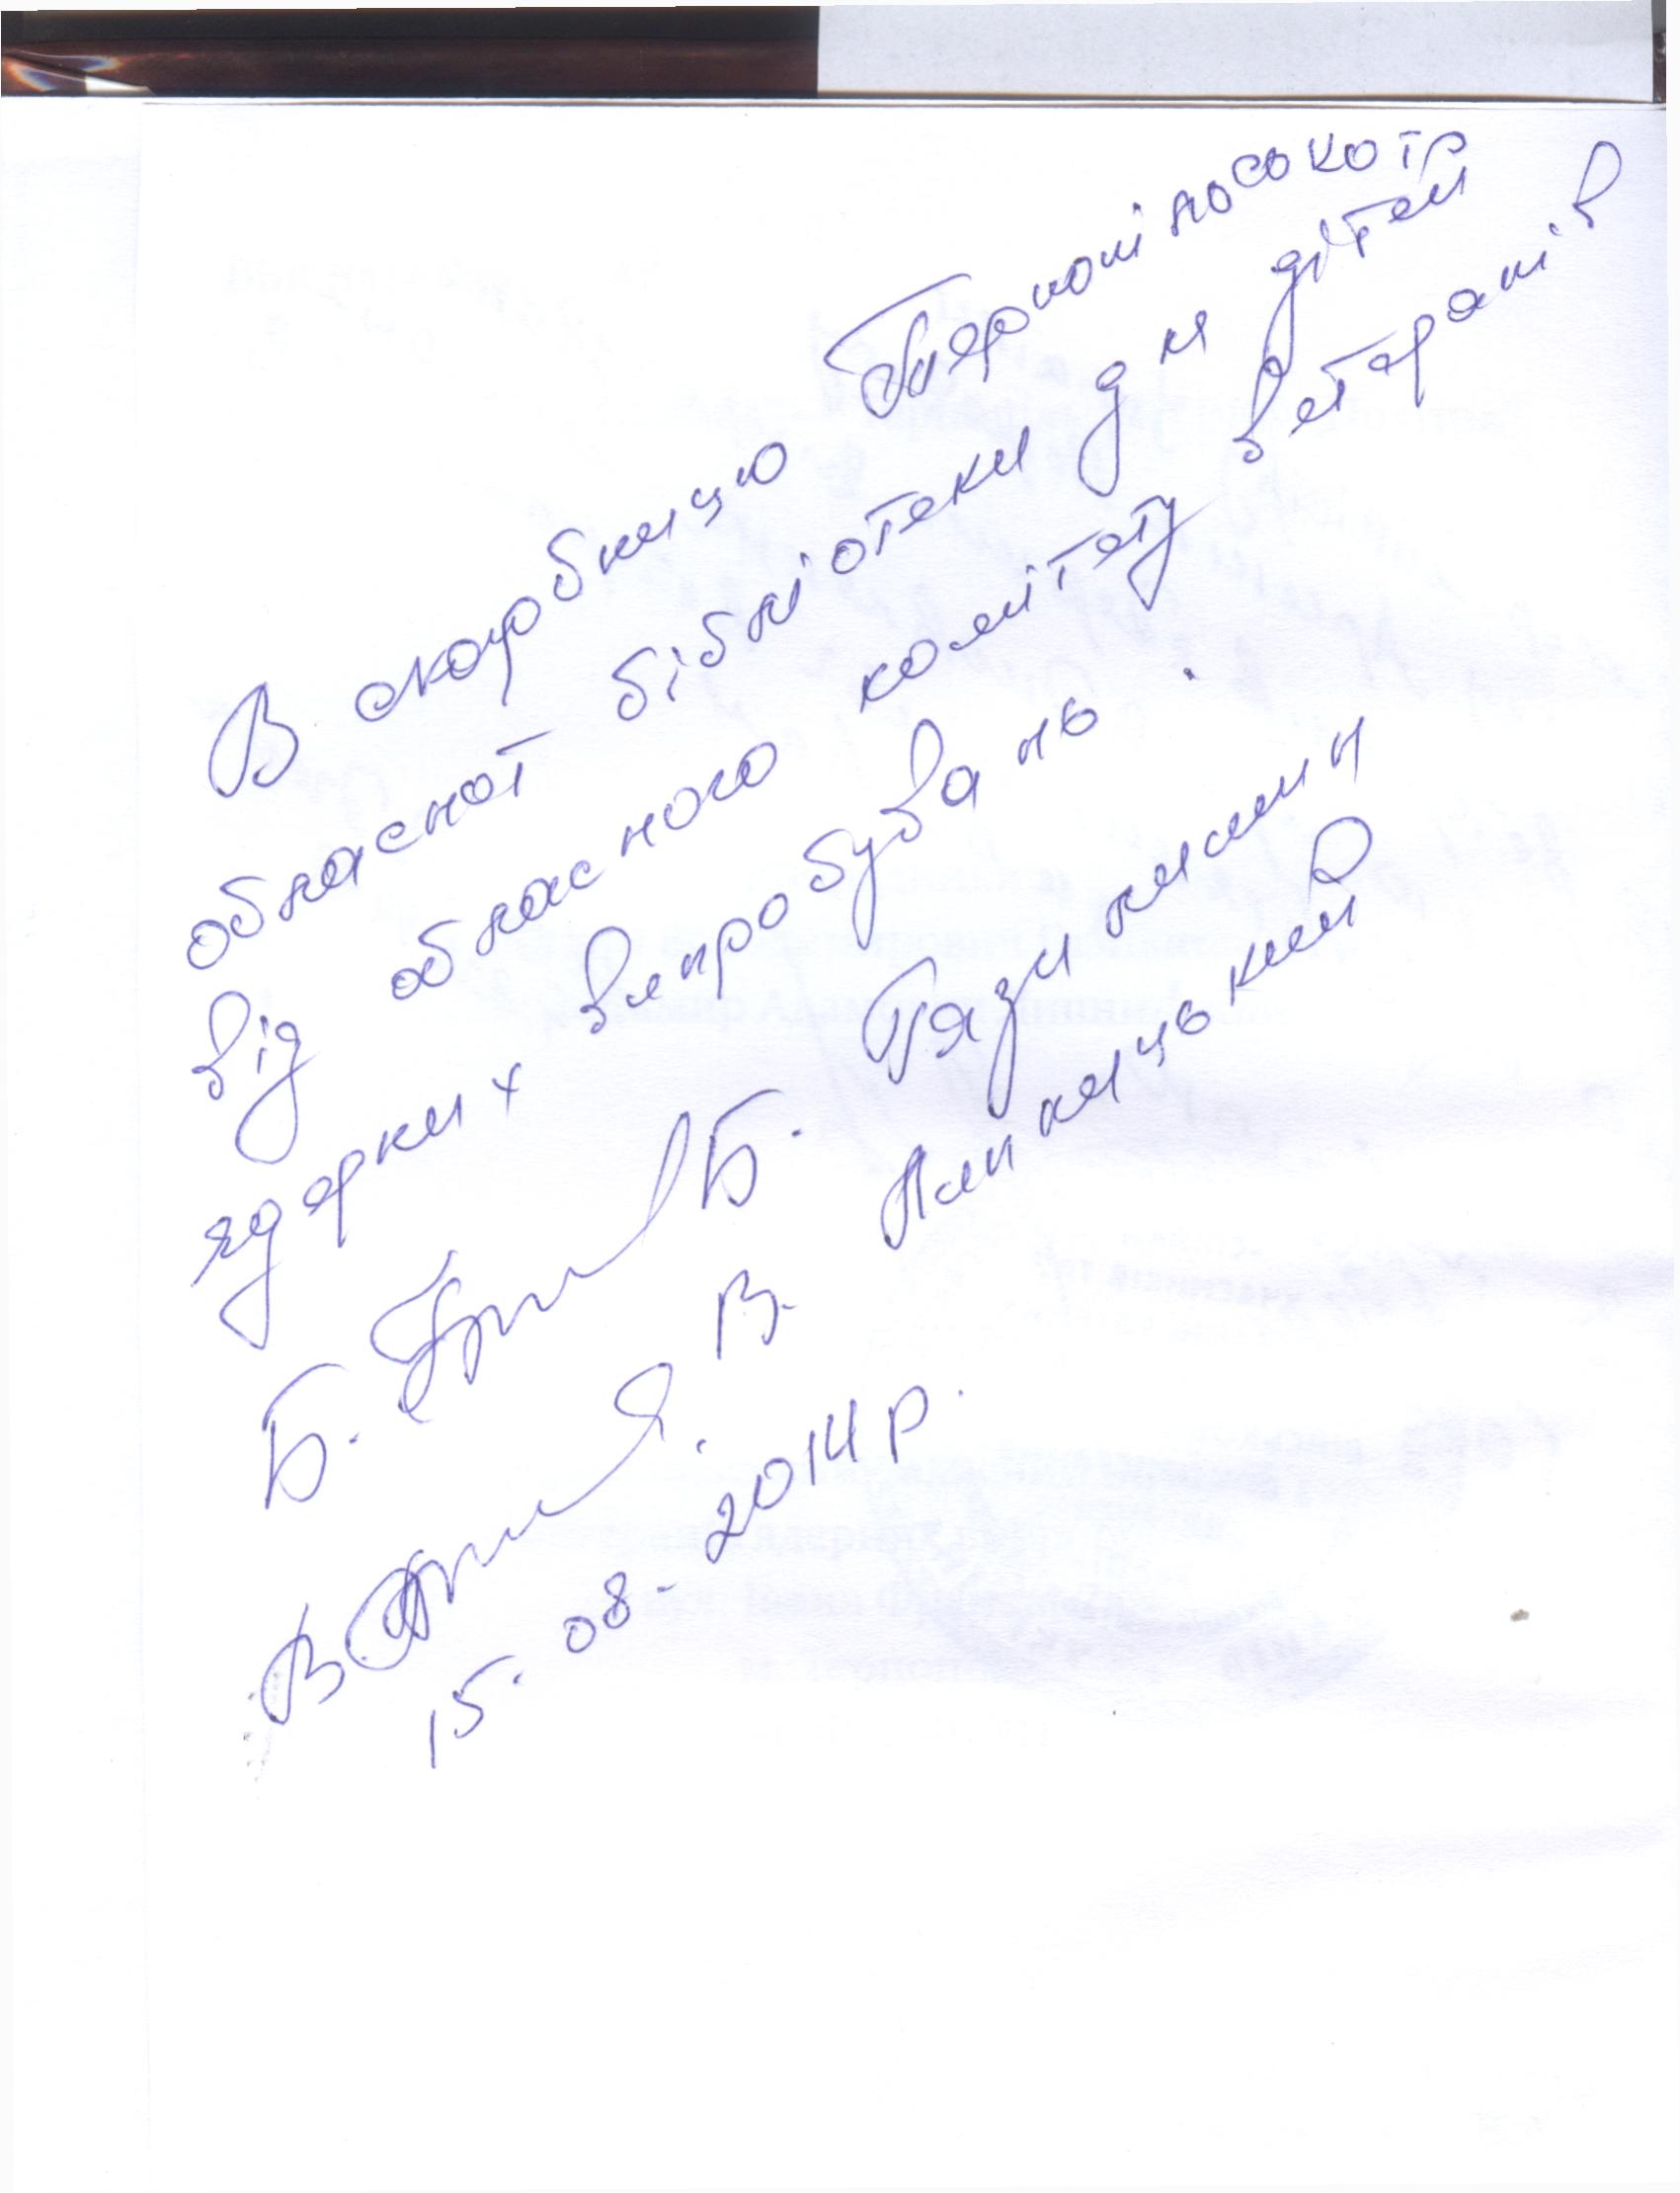 В скарбницю Тернопільської
обласної бібліотеки для дітей
від обласного комітету ветеранів
ядерних випробувань.
Б. Б.
В. В. Липницький
15.08.2014 р.